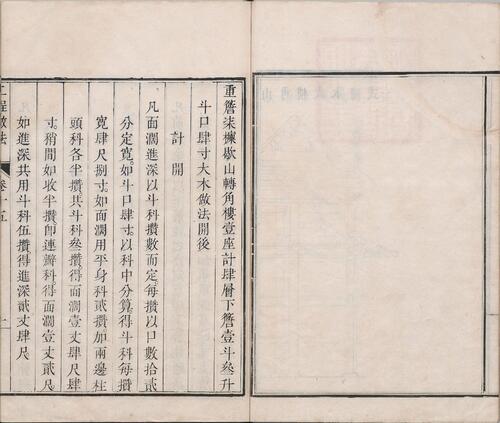 重簷柒檁歇山轉角樓壹座計肆層下簷壹斗叁升
斗口肆寸大木做法開後
計開
凡面濶進深以斗科攢數而定每攢以口數拾貳
分定寬如斗口肆寸以科中分算得斗科每攢
寬肆尺捌寸如面濶用平身科貳攢加兩邊柱
頭科各半攢共斗科叁攢得面濶壹丈肆尺肆
寸稍間如收半攢即連瓣科得面濶壹丈貳尺
如進深共用斗科伍攢得進深貳丈肆尺
工程做法
卷十五
一